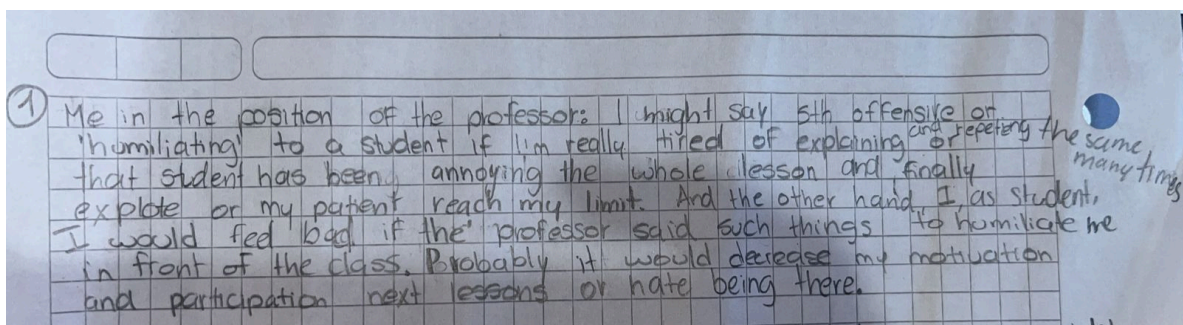 1 Me in the position of the professor: I might say sth offensive or
'humiliating' to a student if I'm really tired of explaining and repeting the same, many times or
that student has been annoying the whole lesson and finally
explote or my patient reach my limit. And the other hand, I as student,
I would feel bad if the professor said such things to homiliate me
in front of the class. Probably it would decrease my motivation
and participation next lessons or hate being there.